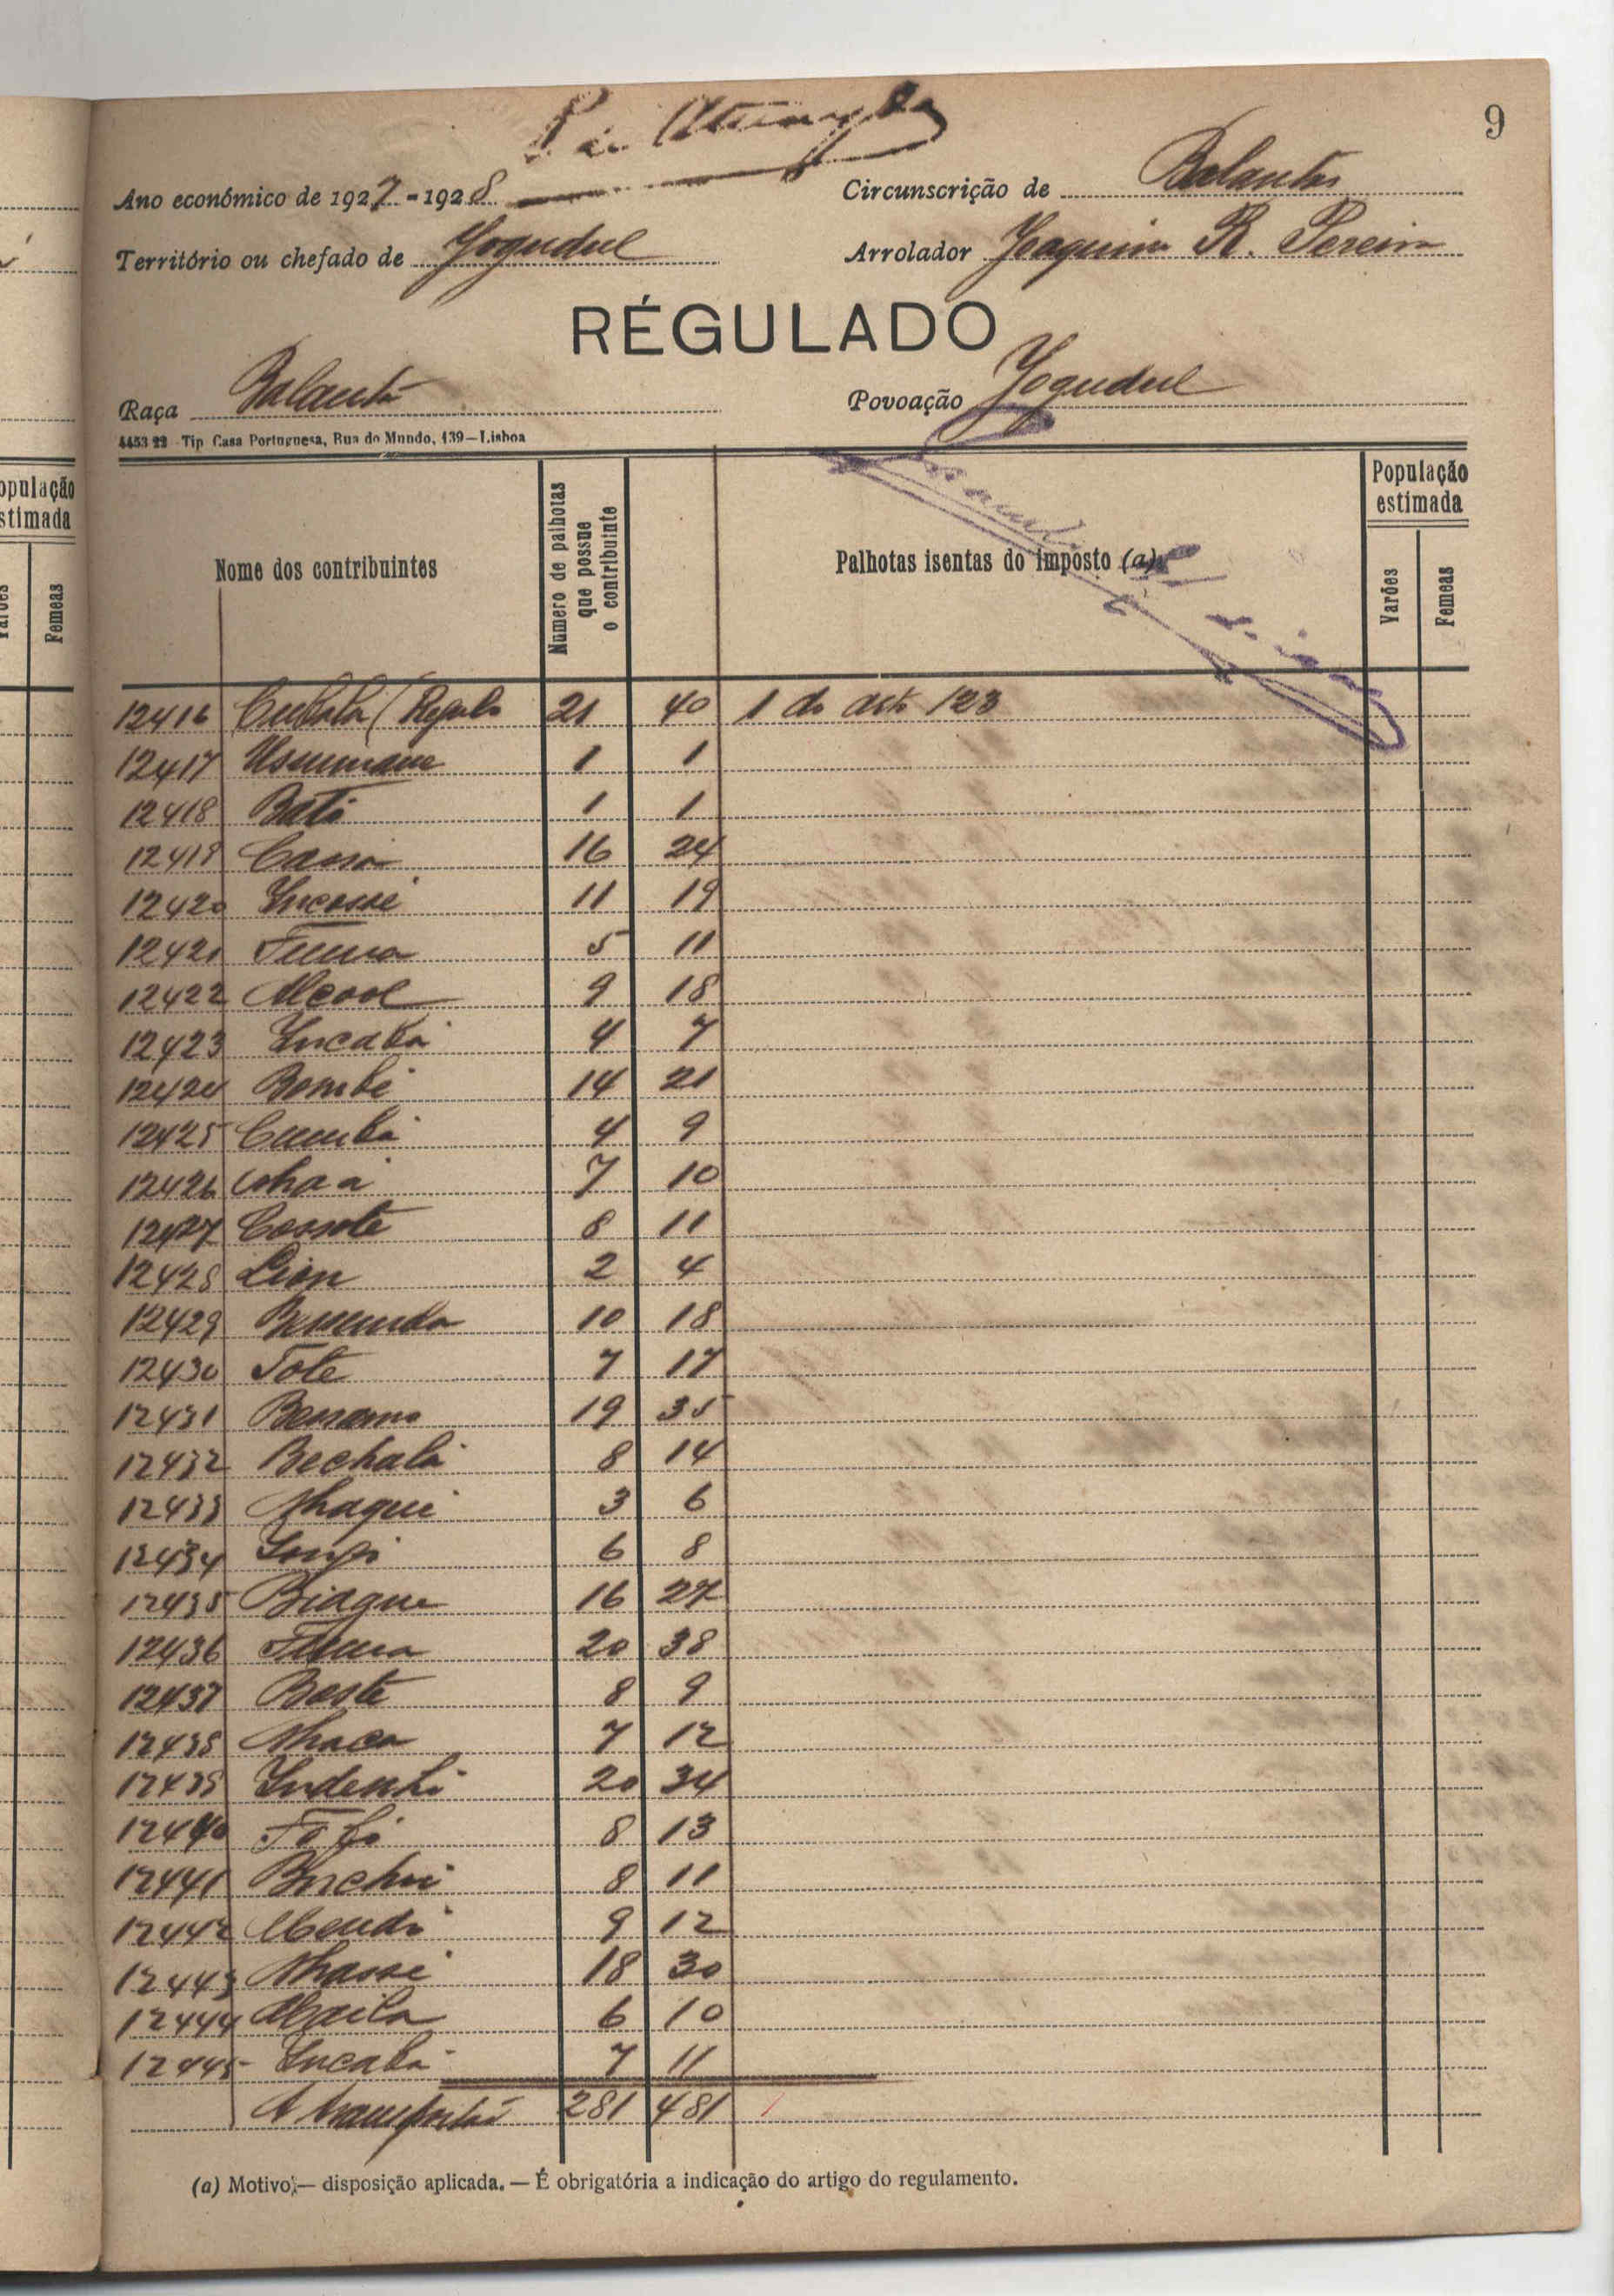 9
Ano económico de 1927-1928 Circunscrição de Balantas
Território ou chefado de Jogudul Arrolador Joaquim R. Pereira
RÉGULADO
Raça Balanta Povoação Jogudul
4453 22 Tip Casa Portuguesa, Rua do Mundo, 139—Lisboa
opulação
stimada
Femeas
Nome dos contribuintes
Número de palhotas que possue o contribuinte
Palhotas isentas do imposto (a)
População estimada
Varões
Femeas
12416 (Regulo 21 40 1 do art. 123
12417 Ussumane 1 1
12418 Bati 1 1
12419 16 24
12420 Incossé 11 19
12421 5 11
12422 Alcool 9 18
12423 Incaba 4 7
12424 Bombé 14 21
12425 Cumba 4 9
12426 7 10
12427 8 11
12428 Lion 2 4
12429 10 18
12430 Tote 7 17
12431 19 35
12432 Bechala 8 14
12433 Nhaqui 3 6
12434 6 8
12435 Biague 16 27
12436 20 38
12437 Beste 8 9
12438 Nhaca 7 12
12439 20 34
12440 8 13
12441 8 11
12442 9 12
12443 Nhassé 18 30
12444 6 10
12445 Incaba 7 11
A transportar 281 481
(a) Motivo;— disposição aplicada. — É obrigatória a indicação do artigo do regulamento.